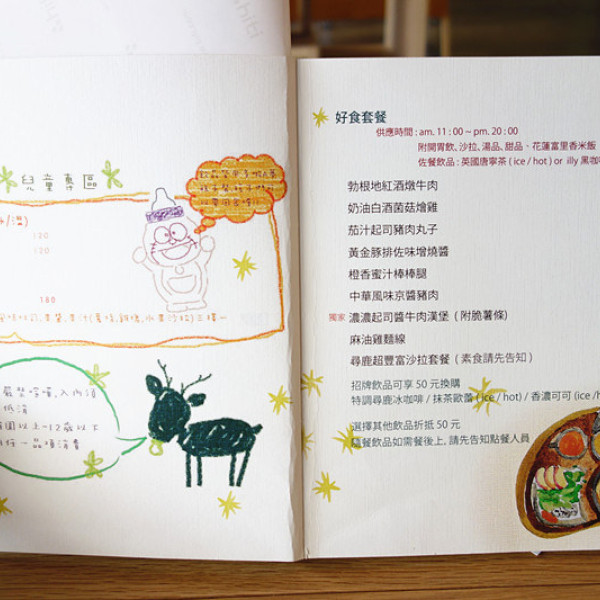 兒童專區
120
120
180
入內須
低消
歲以上~12歲以上
一品項消費
好食套餐
供應時間：am. 11：00 ~ pm. 20：00
附開胃飲、沙拉、湯品、甜品、花蓮富里香米飯
佐餐飲品：英國唐寧茶 ( ice / hot ) or illy 黑咖
勃根地紅酒燉牛肉
奶油白酒菌菇燴雞
茄汁起司豬肉丸子
黃金豚排佐味增燒醬
橙香蜜汁棒棒腿
中華風味京醬豬肉
獨家 濃濃起司醬牛肉漢堡（附脆薯條）
麻油雞麵線
尋鹿超豐富沙拉套餐（素食請先告知）
招牌飲品可享 50 元換購
特調尋鹿冰咖啡 / 抹茶歐蕾 ( ice / hot) / 香濃可可 (ice /h
選擇其他飲品折抵 50 元
隨餐飲品如需餐後上, 請先告知點餐人員